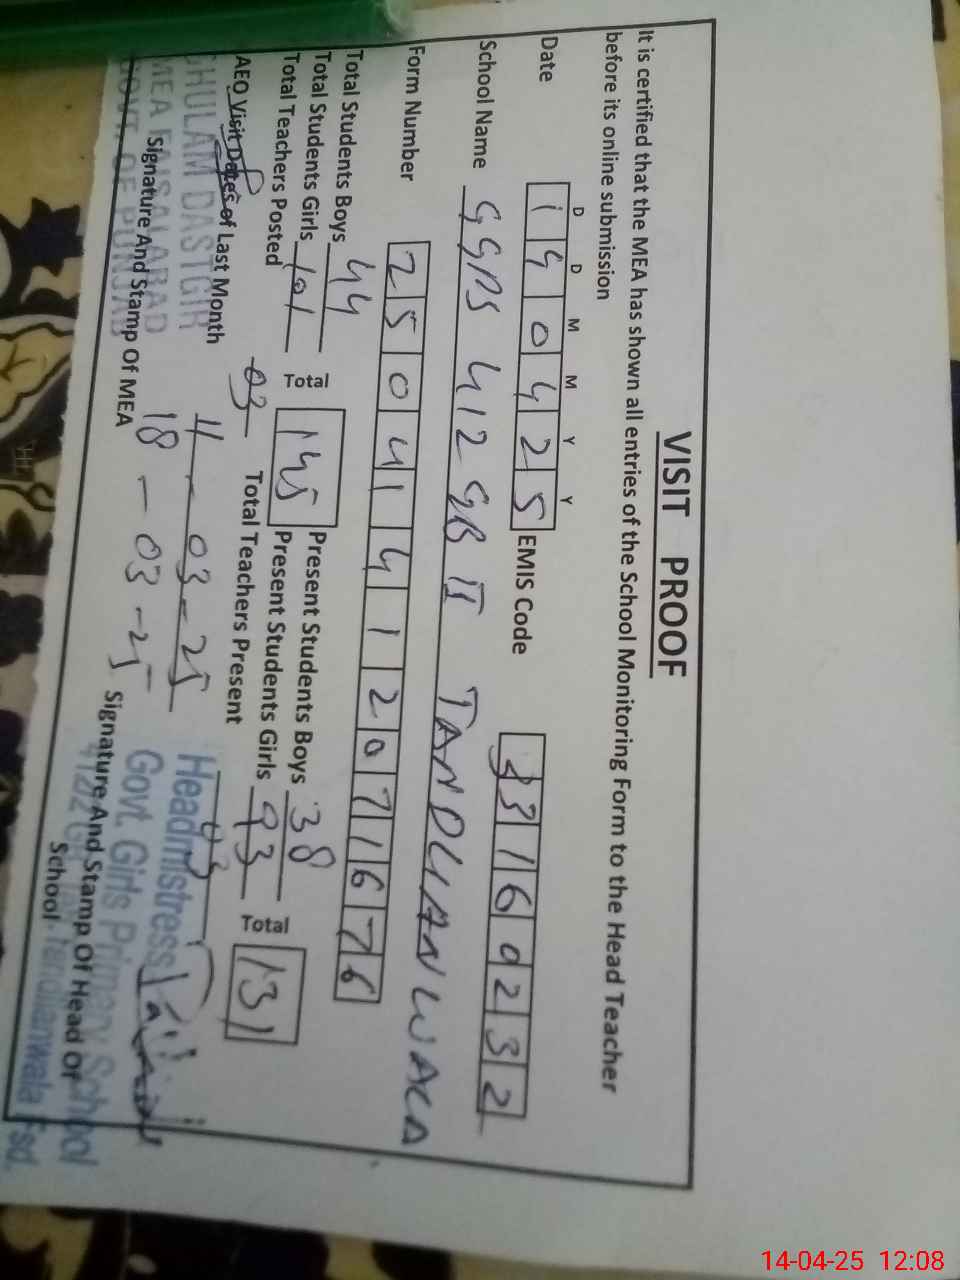 VISIT PROOF
It is certified that the MEA has shown all entries of the School Monitoring Form to the Head Teacher
before its online submission
D D M M Y Y
Date 1 4 0 4 2 5 EMIS Code 3 3 1 6 0 2 3 2
School Name GGPS 412 GB II TANDLIANWALA
Form Number 2 5 0 4 1 4 1 2 0 7 1 6 7 6
Total Students Boys 44 Present Students Boys 38
Total Students Girls 101 Total 145 Present Students Girls 93 Total 131
Total Teachers Posted 03 Total Teachers Present 03
AEO Visit Dates of Last Month 11 - 03 - 25
18 - 03 - 25
GHULAM DASTGIR
MEA FAISALABAD
GOVT. OF PUNJAB
Signature And Stamp Of MEA
Headmistress
Govt. Girls Primary School
Tandlianwala Fsd.
Signature And Stamp Of Head Of
School
14-04-25 12:08